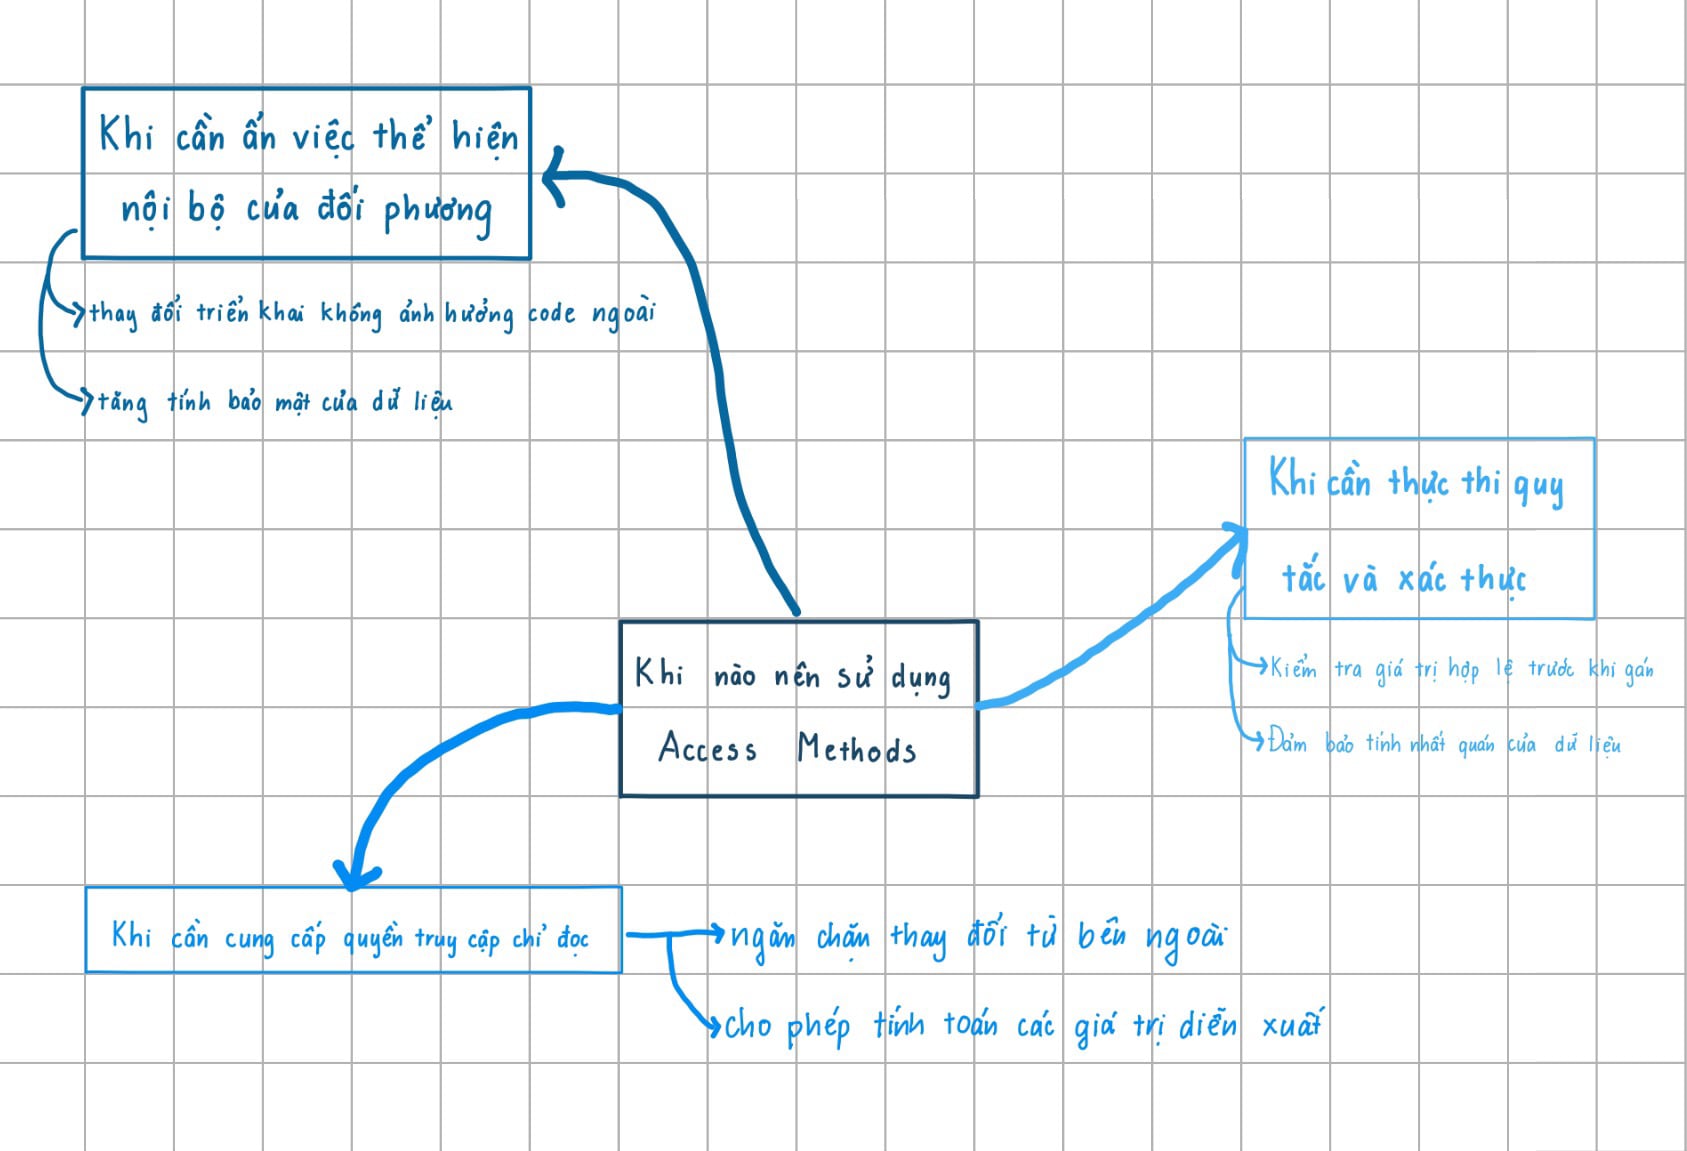 Khi cần ẩn việc thể hiện
nội bộ của đối phương
thay đổi triển khai không ảnh hưởng code ngoài
tăng tính bảo mật của dữ liệu
Khi cần thực thi quy
tắc và xác thực
Kiểm tra giá trị hợp lệ trước khi gán
Đảm bảo tính nhất quán của dữ liệu
Khi nào nên sử dụng
Access Methods
Khi cần cung cấp quyền truy cập chỉ đọc
ngăn chặn thay đổi từ bên ngoài
cho phép tính toán các giá trị diễn xuất